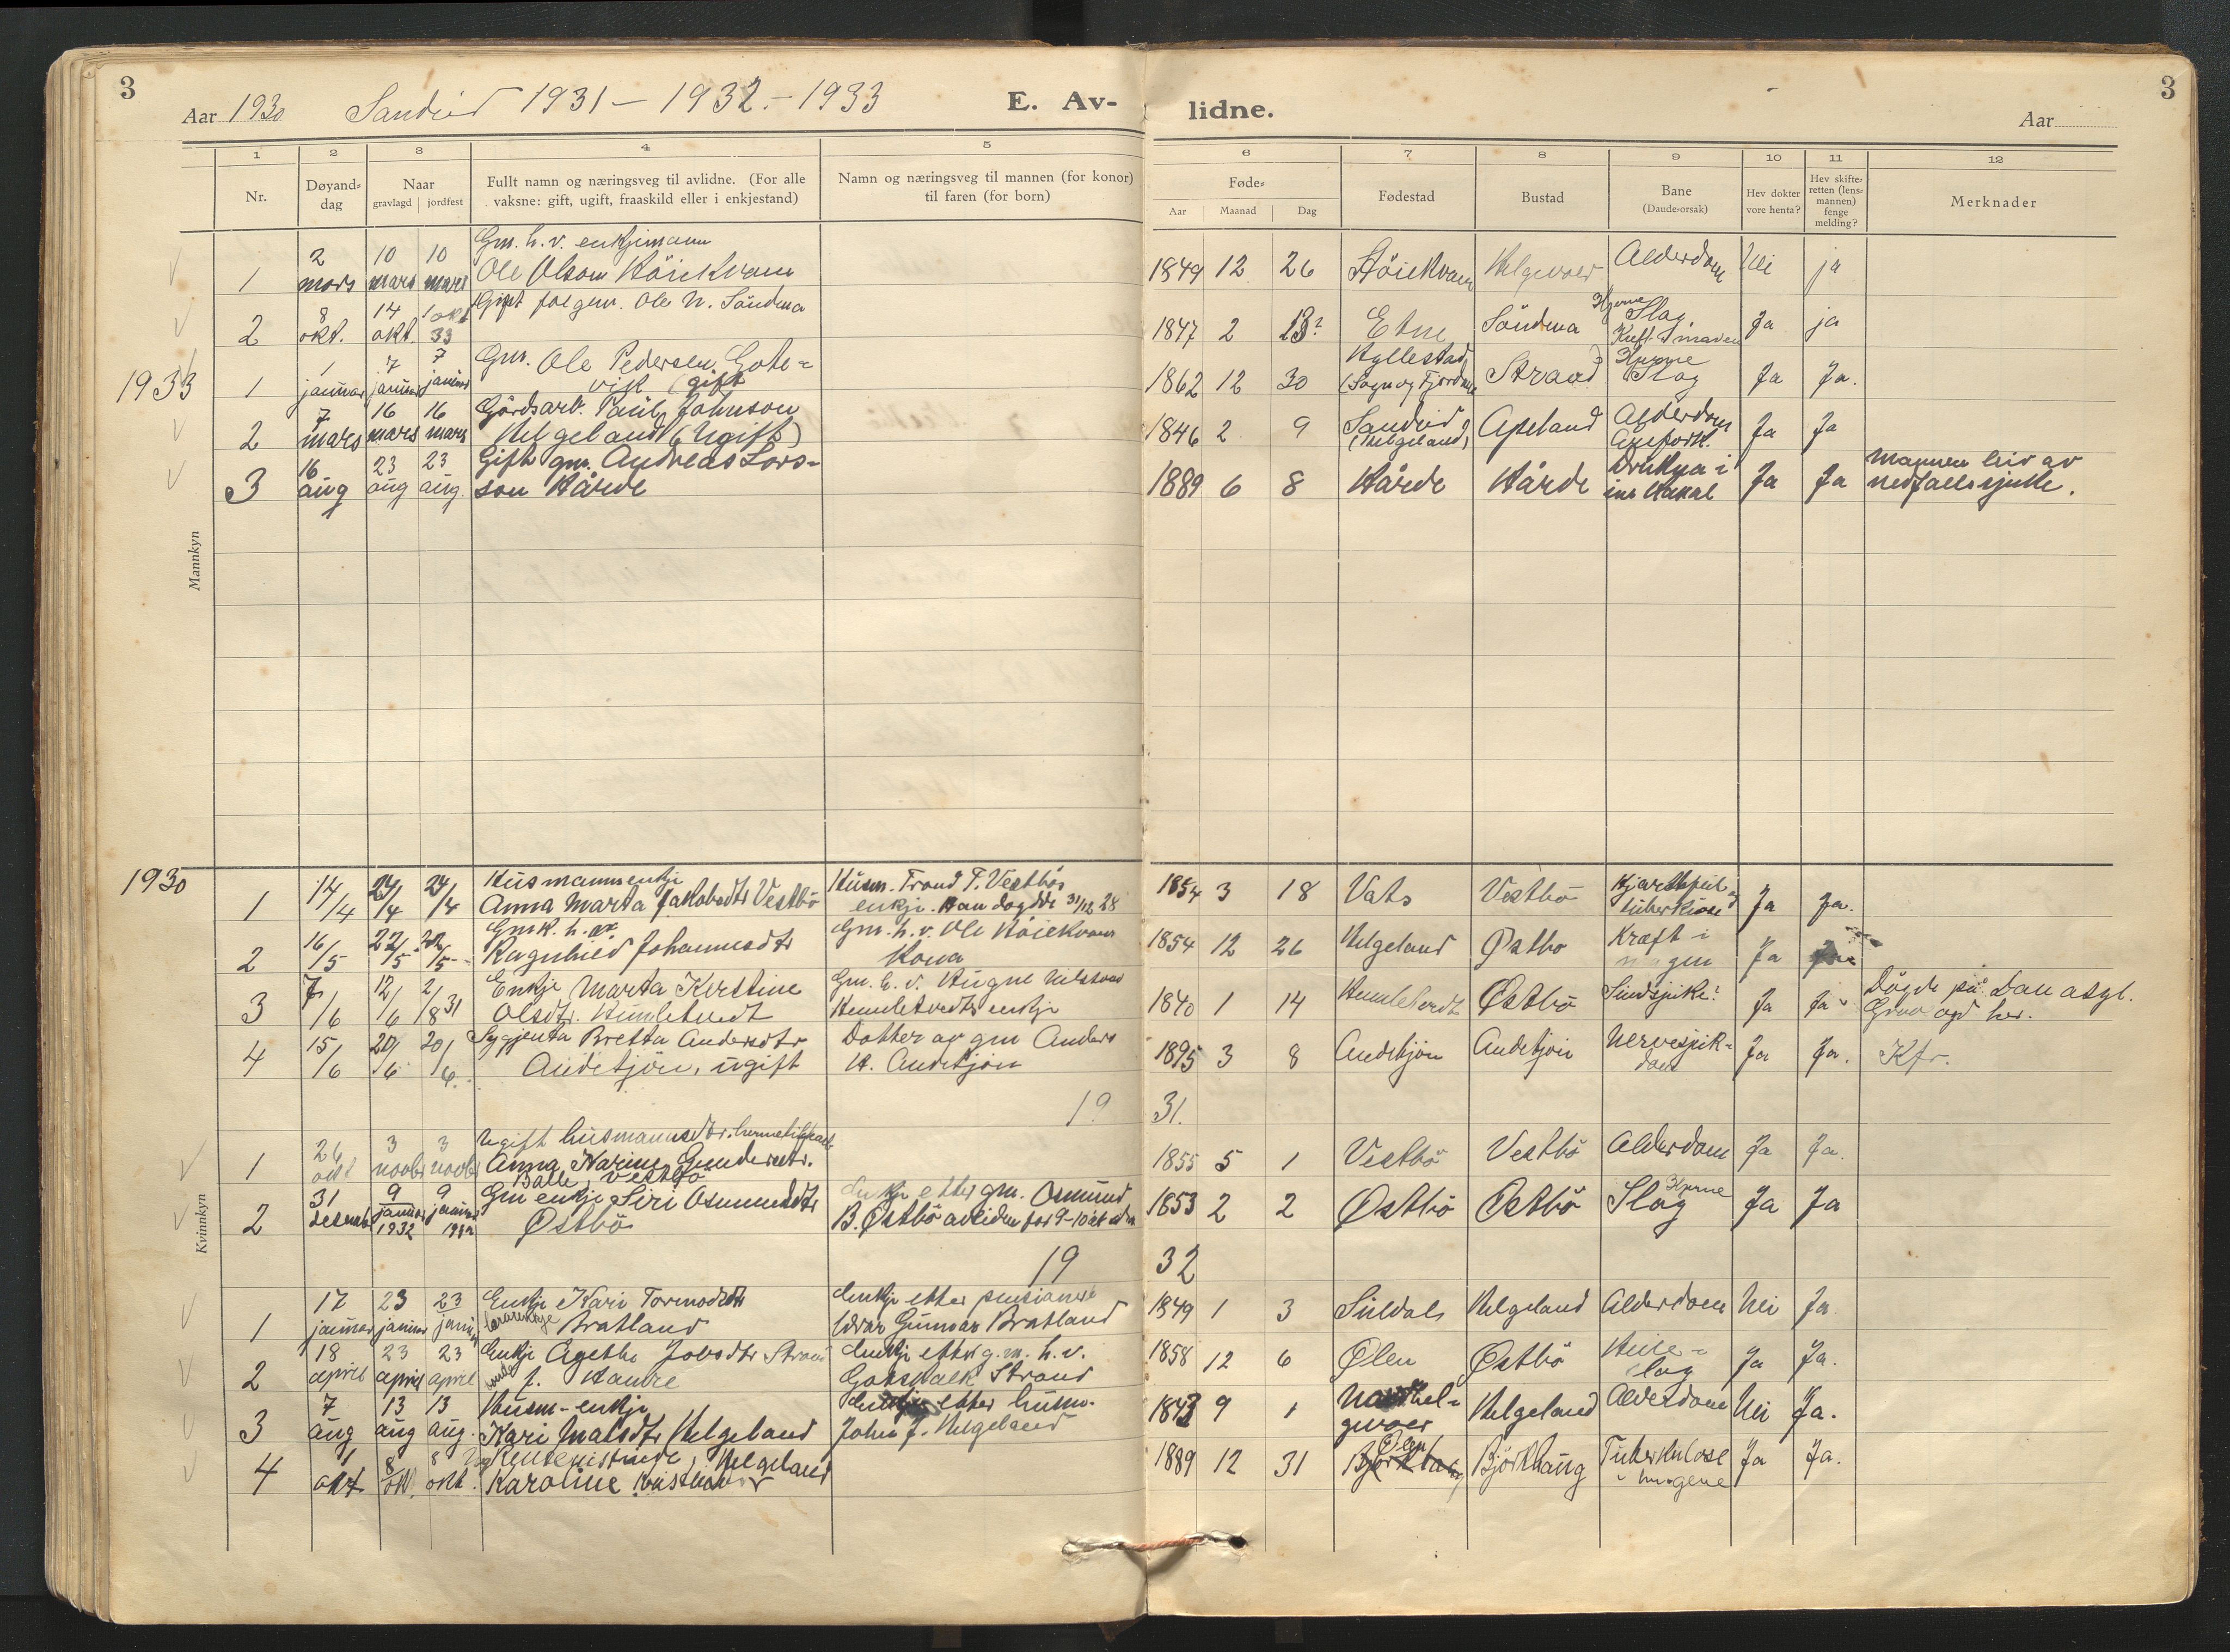 3
Aar 1930 Sandeid 1931 – 1932. – 1933 E. Av-
lidne. Aar
3
1 2 3 4 5
Nr. Døyand-dag Naar gravlagd jordfest Fullt namn og næringsveg til avlidne. (For alle vaksne: gift, ugift, fraaskild eller i enkjestand) Namn og næringsveg til mannen (for konor) til faren (for born)
6 7 8 9 10 11 12
Føde- Aar Maanad Dag Fødestad Bustad Bane (Daudeorsak) Hev dokter vore henta? Hev skifteretten (lensmannen) fenge melding? Merknader
Mannkyn
Gm. h. v. enkjemann
1 2 mars 10 mars 10 mars Ole Olson Höiekvam 1849 12 26 Höiekvam Helgevoer Alderdom Nei ja
2 8 okt. 14 okt. 1 okt 33 Gift folgm. Ole N. Söndena 1847 2 13? Etne Söndena Hjerne Slag Kreft i maven Ja ja
1933 1 1 januar 7 januar 7 januar Gm. Ole Pedersen Gote-
vik (gift 1862 12 30 Hyllestad (Sogn og Fjordane Strand Hjerne Slag Ja Ja.
2 7 mars 16 mars 16 mars Gårdsarb. Paul Johnson
Helgeland (Ugift) 1846 2 9 Sandeid (Helgeland) Apeland Alderdom Ja Ja
3 16 aug 23 aug 23 aug Gift gm. Andreas Lars-
son Hårde 1889 6 8 Hårde Hårde Drukna i Ja Ja Mannen leid av
nedfallssjuke.
Kvinnkyn
1930 1 14/4 24/4 24/4 Husmannsenkje
Anna Marta Jakobsdtr Vestbö Husm. Trond T. Vestbös
enkje. Han dogdde 31/12 28 1854 3 18 Vats Vestbö Hjartefeil og tuberkulose Ja Ja.
2 16/5 22/5 22/5 Gmk. h. av
Ragnhild Johannesdtr Gm. h. v. Ole Höiekvam
Kona 1854 12 26 Helgeland Østbö Kræft i magen Ja Ja
3 7/6 12/6 2/8 31 Enkje Marta Kirstine
Olsdtr. Humletvedt Gm. h. v. Hugne
Humletvedts enkje 1840 1 14 Humletvedt Østbö Sindsjuke? Ja Ja Dögde på Dale asyl.
Grav opd her.
4 15/6 20/6 20/6 Sygjenta Bretta Andersdtr
Audetjön, ugift Dotter av gm Anders
H. Audetjön 1895 3 8 Audetjön Audetjön Nervesjuk-dom Ja Ja. Kfr.
19 31.
1 26 okt 3 novbr 3 novbr Ugift husmannsdtr.
Anna Karine Gundersdtr.
Balle, Vestbö 1855 5 1 Vestbö Vestbö Alderdom Ja Ja.
2 31 desember 9 januar 1932 9 januar 1932 Gm enkje Siri Osmundsdtr
Østbö Enkje etter gm. Osmund
B. Østbö avliden for 9-10 år sidn 1853 2 2 Østbö Østbö Hjerne Slag Ja Ja
19 32
1 17 januar 23 januar 23 januar Enkje Kari Tormodsdtr
lærarenkje Bratland Enkje etter pensionert
lærar Gunnar Bratland 1849 1 3 Suldal Helgeland Alderdom Nei Ja
2 18 april 23 april 23 april Enkje Agethe Jobsdtr Strand
f. Haukre Enkje etter g.m. h. v.
Gotskalk Strand 1858 12 6 Ølen Østbö slag Ja Ja.
3 7 aug 13 aug 13 aug. Husm-enkje
Kari Matsdtr Helgeland Enkje etter husm.
John J. Helgeland 1843 9 1 Helgeland Alderdom Nei Ja.
4 1 okt 8 okt. 8 okt. Helgeland
Karoline 1889 12 31 Björkhaug Ølen Björkhaug Tuberkulose
i lungene Ja Ja.